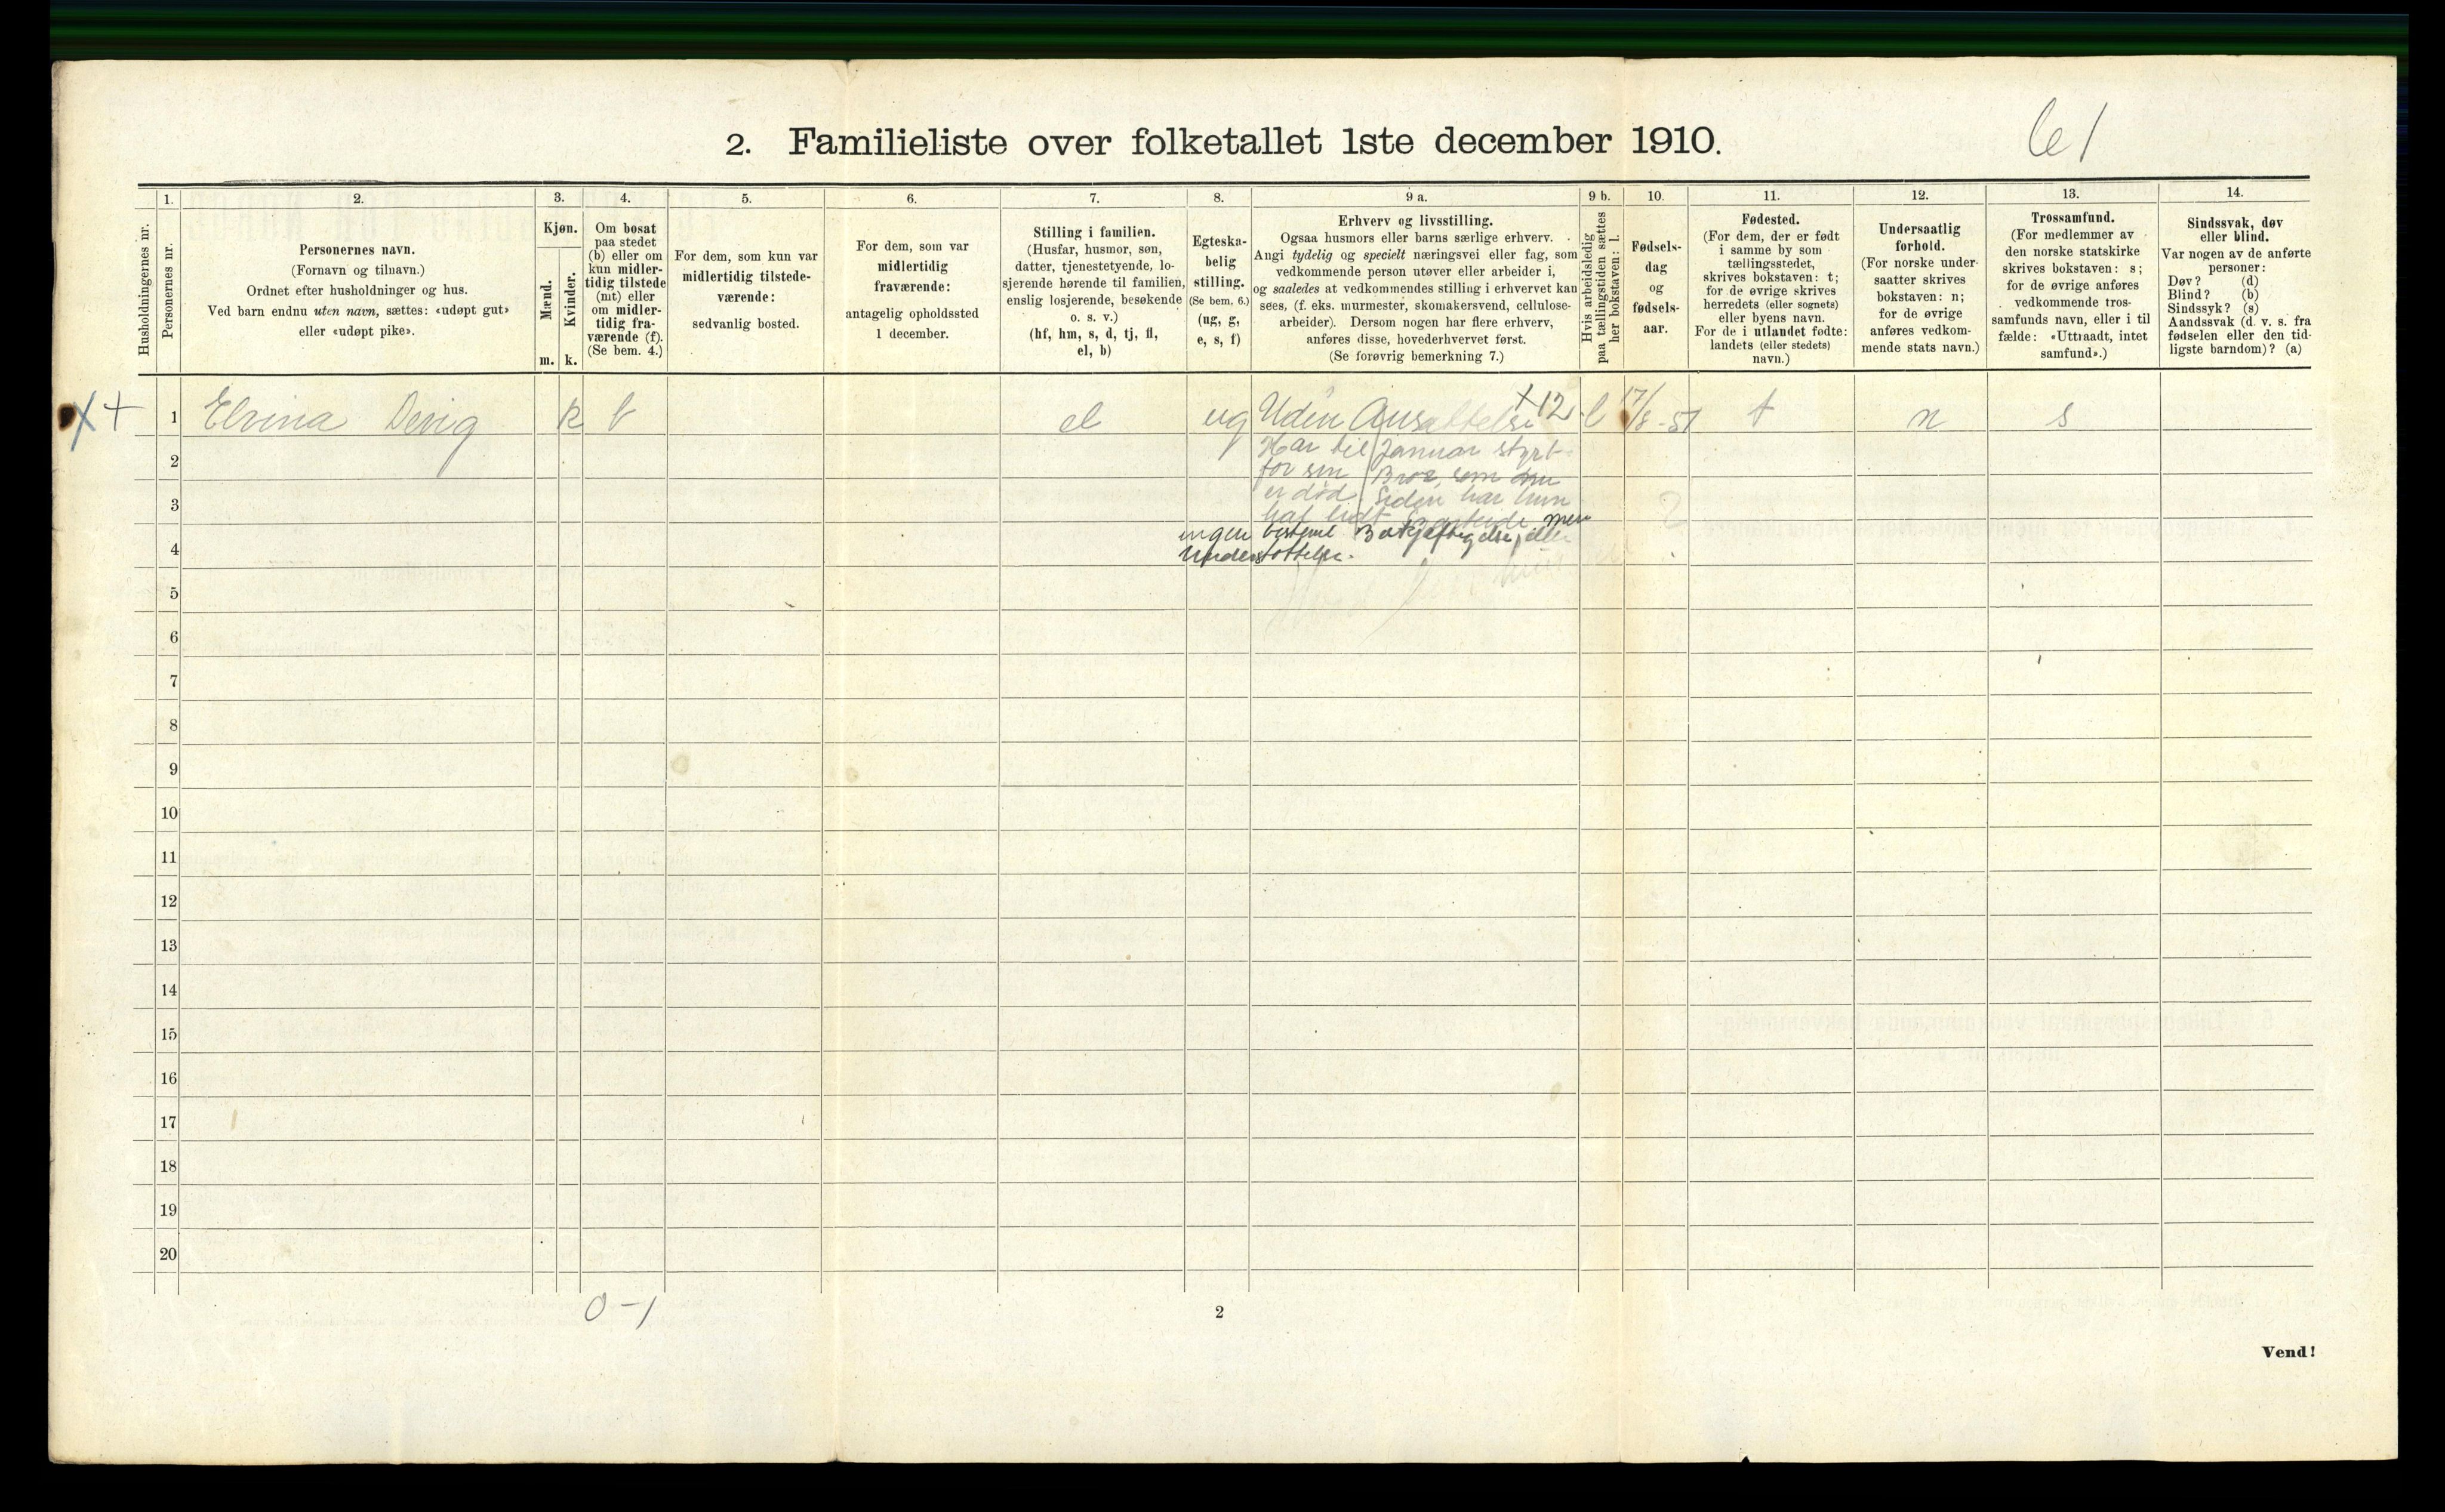 2. Familieliste over folketallet 1ste december 1910.
61
Husholdningernes nr.
1.
Personernes nr.
2.
Personernes navn.
(Fornavn og tilnavn.)
Ordnet efter husholdninger og hus.
Ved barn endnu uten navn, sættes: «udøpt gut»
eller «udøpt pike».
3.
Kjøn.
Mænd.
m.
Kvinder.
k.
4.
Om bosat
paa stedet
(b) eller om
kun midler-
tidig tilstede
(mt) eller
om midler-
tidig fra-
værende (f).
(Se bem. 4.)
5.
For dem, som kun var
midlertidig tilstede-
værende:
sedvanlig bosted.
6.
For dem, som var
midlertidig
fraværende:
antagelig opholdssted
1 december.
7.
Stilling i familien.
(Husfar, husmor, søn,
datter, tjenestetyende, lo-
sjerende hørende til familien,
enslig losjerende, besøkende
o. s. v.)
(hf, hm, s, d, tj, fl,
el, b)
8.
Egteska-
belig
stilling.
(Se bem. 6.)
(ug, g,
e, s, f)
9 a.
Erhverv og livsstilling.
Ogsaa husmors eller barns særlige erhverv.
Angi tydelig og specielt næringsvei eller fag, som
vedkommende person utøver eller arbeider i,
og saaledes at vedkommendes stilling i erhvervet kan
sees, (f. eks. murmester, skomakersvend, cellulose-
arbeider). Dersom nogen har flere erhverv,
anføres disse, hovederhvervet først.
(Se forøvrig bemerkning 7.)
9 b.
Hvis arbeidsledig
paa tællingstiden sættes
her bokstaven: l.
10.
Fødsels-
dag
og
fødsels-
aar.
11.
Fødested.
(For dem, der er født
i samme by som
tællingsstedet,
skrives bokstaven: t;
for de øvrige skrives
herredets (eller sognets)
eller byens navn.
For de i utlandet fødte:
landets (eller stedets)
navn.)
12.
Undersaatlig
forhold.
(For norske under-
saatter skrives
bokstaven: n;
for de øvrige
anføres vedkom-
mende stats navn.)
13.
Trossamfund.
(For medlemmer av
den norske statskirke
skrives bokstaven: s;
for de øvrige anføres
vedkommende tros-
samfunds navn, eller i til
fælde: «Uttraadt, intet
samfund».)
14.
Sindssvak, døv
eller blind.
Var nogen av de anførte
personer:
Døv? (d)
Blind? (b)
Sindssyk? (s)
Aandssvak (d. v. s. fra
fødselen eller den tid-
ligste barndom)? (a)
X+ 1 Elvina Devig k b el ug Uden Ansættelse +12 l 17/8-51 t n s
Har til Januar styrt
2
for sin Bror, som nu
er død. Siden har hun
3
hat lidt men
ingen bestemt Beskjæftigelse, eller
4
Understøttelse.
5
6
7
8
9
10
11
12
13
14
15
16
17
18
19
20
0-1
2
Vend!